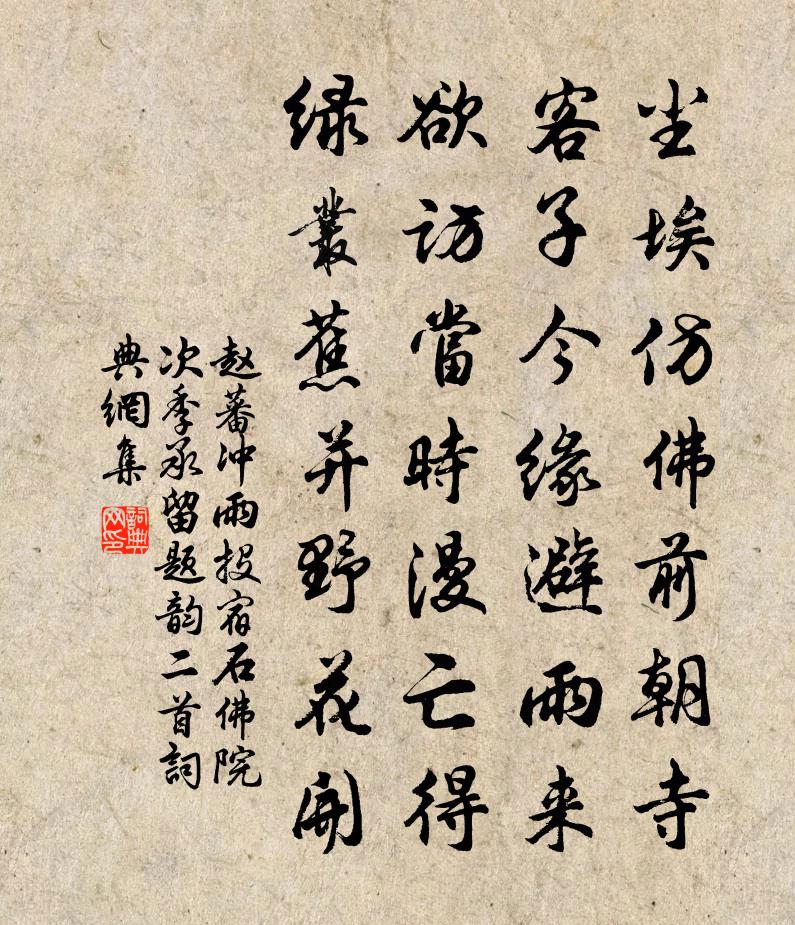 尘埃仿佛前朝寺
客子今缘避雨来
欲访當時漫亡得
绿叢蕉并野花開
赵蕃冲雨投宿石佛院
次季承留题韵二首詞
典網集
詞典网印